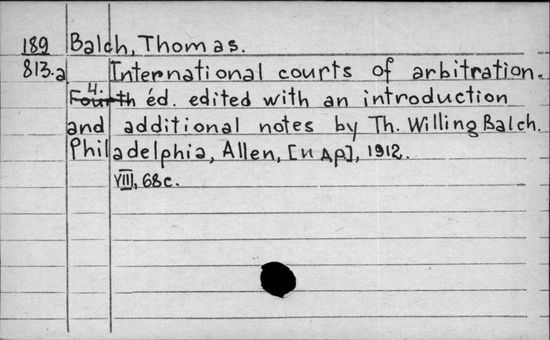 189 Balch, Thomas.
813.a International courts of arbitration.
4.
Fourth éd. edited with an introduction
and additional notes by Th. Willing Balch.
Philadelphia, Allen, [и др], 1912.
VIII, 68c.